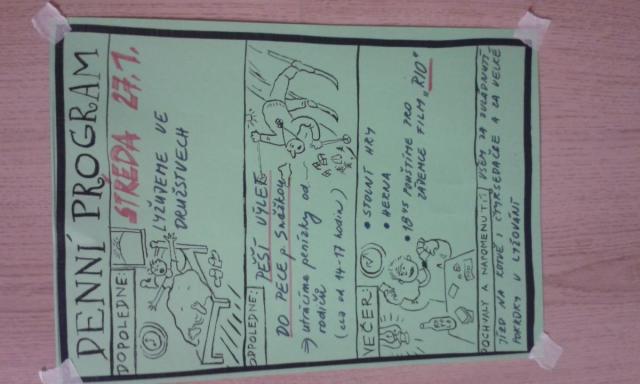 DENNÍ PROGRAM
STŘEDA 27.1.
DOPOLEDNE:
LYŽUJEME VE
DRUŽSTVECH
ODPOLEDNE:
PĚŠÍ VÝLET
DO PECE p. Sněžkou
⇒ utrácíme penízky od
rodičů
(cca od 14-17 hodin)
VEČER:
• STOLNÍ HRY
• HERNA
• 18 45 POUŠTÍME PRO
ZÁJEMCE FILM "RIO"
POCHVALY A NAPOMENUTÍ:
VŠEM ZA ZVLÁDNUTÍ
JÍZD NA KOTVĚ I ČTYŘSEDAČCE A ZA VELKÉ
POKROKY V LYŽOVÁNÍ